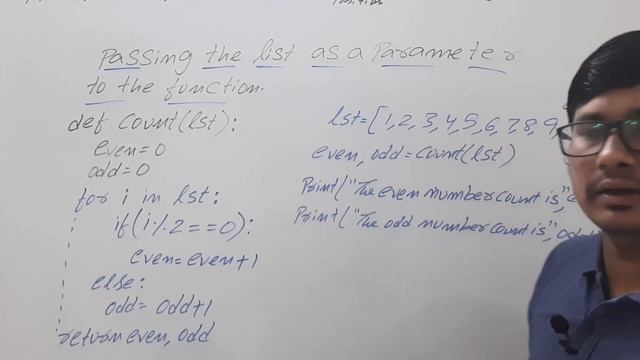 Position
Passing the list as a Parameter
to the function.
def Count(lst):
even=0
odd=0
for i in lst:
if(i%2==0):
even=even+1
else:
odd=odd+1
return even, odd
lst=[1,2,3,4,5,6,7,8,9,
even, odd=Count(lst)
Print("The even number count is,"e
Print("The odd number count is", odd